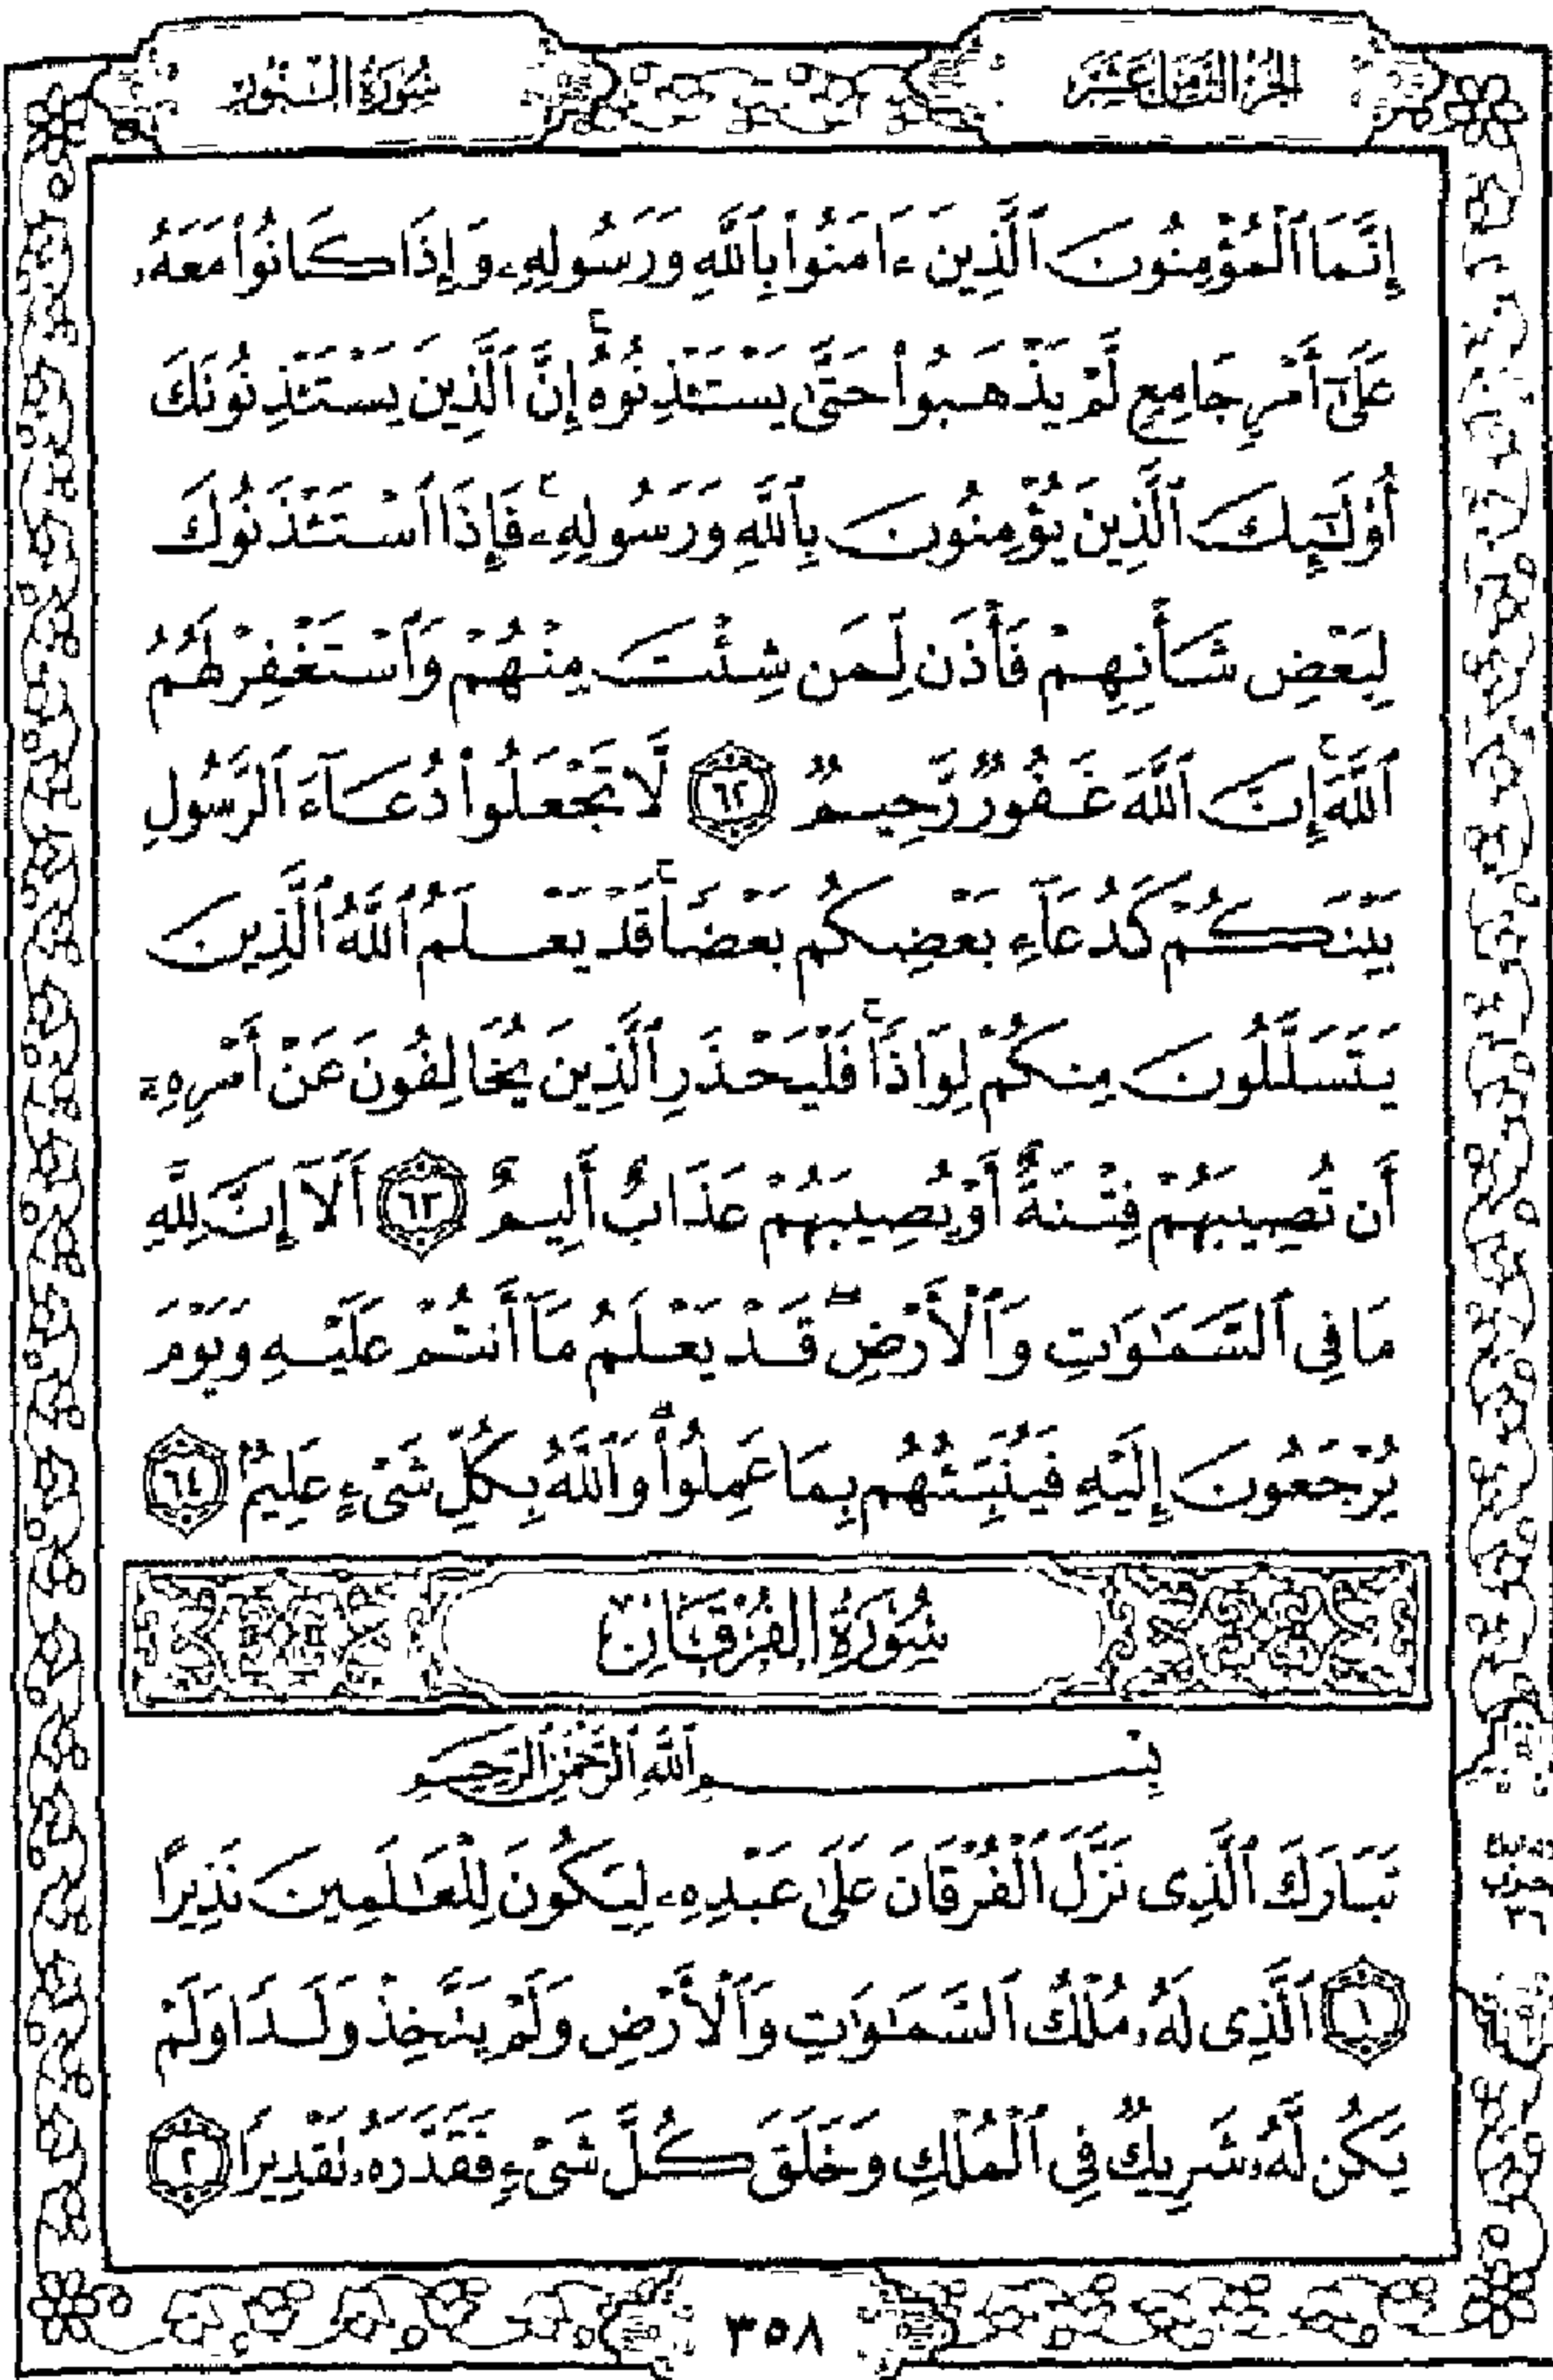 الجزء الثامن عشر
سورة النور
إِنَّمَا ٱلْمُؤْمِنُونَ ٱلَّذِينَ ءَامَنُوا۟ بِٱللَّهِ وَرَسُولِهِۦ وَإِذَا كَانُوا۟ مَعَهُۥ
عَلَىٰٓ أَمْرٍ جَامِعٍ لَّمْ يَذْهَبُوا۟ حَتَّىٰ يَسْتَـْٔذِنُوهُ ۚ إِنَّ ٱلَّذِينَ يَسْتَـْٔذِنُونَكَ
أُو۟لَـٰٓئِكَ ٱلَّذِينَ يُؤْمِنُونَ بِٱللَّهِ وَرَسُولِهِۦ ۚ فَإِذَا ٱسْتَـْٔذَنُوكَ
لِبَعْضِ شَأْنِهِمْ فَأْذَن لِّمَن شِئْتَ مِنْهُمْ وَٱسْتَغْفِرْ لَهُمُ
ٱللَّهَ ۚ إِنَّ ٱللَّهَ غَفُورٌ رَّحِيمٌ ٦٢ لَّا تَجْعَلُوا۟ دُعَآءَ ٱلرَّسُولِ
بَيْنَكُمْ كَدُعَآءِ بَعْضِكُم بَعْضًا ۚ قَدْ يَعْلَمُ ٱللَّهُ ٱلَّذِينَ
يَتَسَلَّلُونَ مِنكُمْ لِوَاذًا ۚ فَلْيَحْذَرِ ٱلَّذِينَ يُخَالِفُونَ عَنْ أَمْرِهِۦٓ
أَن تُصِيبَهُمْ فِتْنَةٌ أَوْ يُصِيبَهُمْ عَذَابٌ أَلِيمٌ ٦٣ أَلَآ إِنَّ لِلَّهِ
مَا فِى ٱلسَّمَـٰوَٰتِ وَٱلْأَرْضِ ۖ قَدْ يَعْلَمُ مَآ أَنتُمْ عَلَيْهِ وَيَوْمَ
يُرْجَعُونَ إِلَيْهِ فَيُنَبِّئُهُم بِمَا عَمِلُوا۟ ۗ وَٱللَّهُ بِكُلِّ شَىْءٍ عَلِيمٌۢ ٦٤
سُورَةُ الفُرْقَانِ
بِسْمِ ٱللَّهِ ٱلرَّحْمَـٰنِ ٱلرَّحِيمِ
تَبَارَكَ ٱلَّذِى نَزَّلَ ٱلْفُرْقَانَ عَلَىٰ عَبْدِهِۦ لِيَكُونَ لِلْعَـٰلَمِينَ نَذِيرًا
١ ٱلَّذِى لَهُۥ مُلْكُ ٱلسَّمَـٰوَٰتِ وَٱلْأَرْضِ وَلَمْ يَتَّخِذْ وَلَدًا وَلَمْ
يَكُن لَّهُۥ شَرِيكٌ فِى ٱلْمُلْكِ وَخَلَقَ كُلَّ شَىْءٍ فَقَدَّرَهُۥ تَقْدِيرًا ٢
حزب
٣٦
٣٥٨